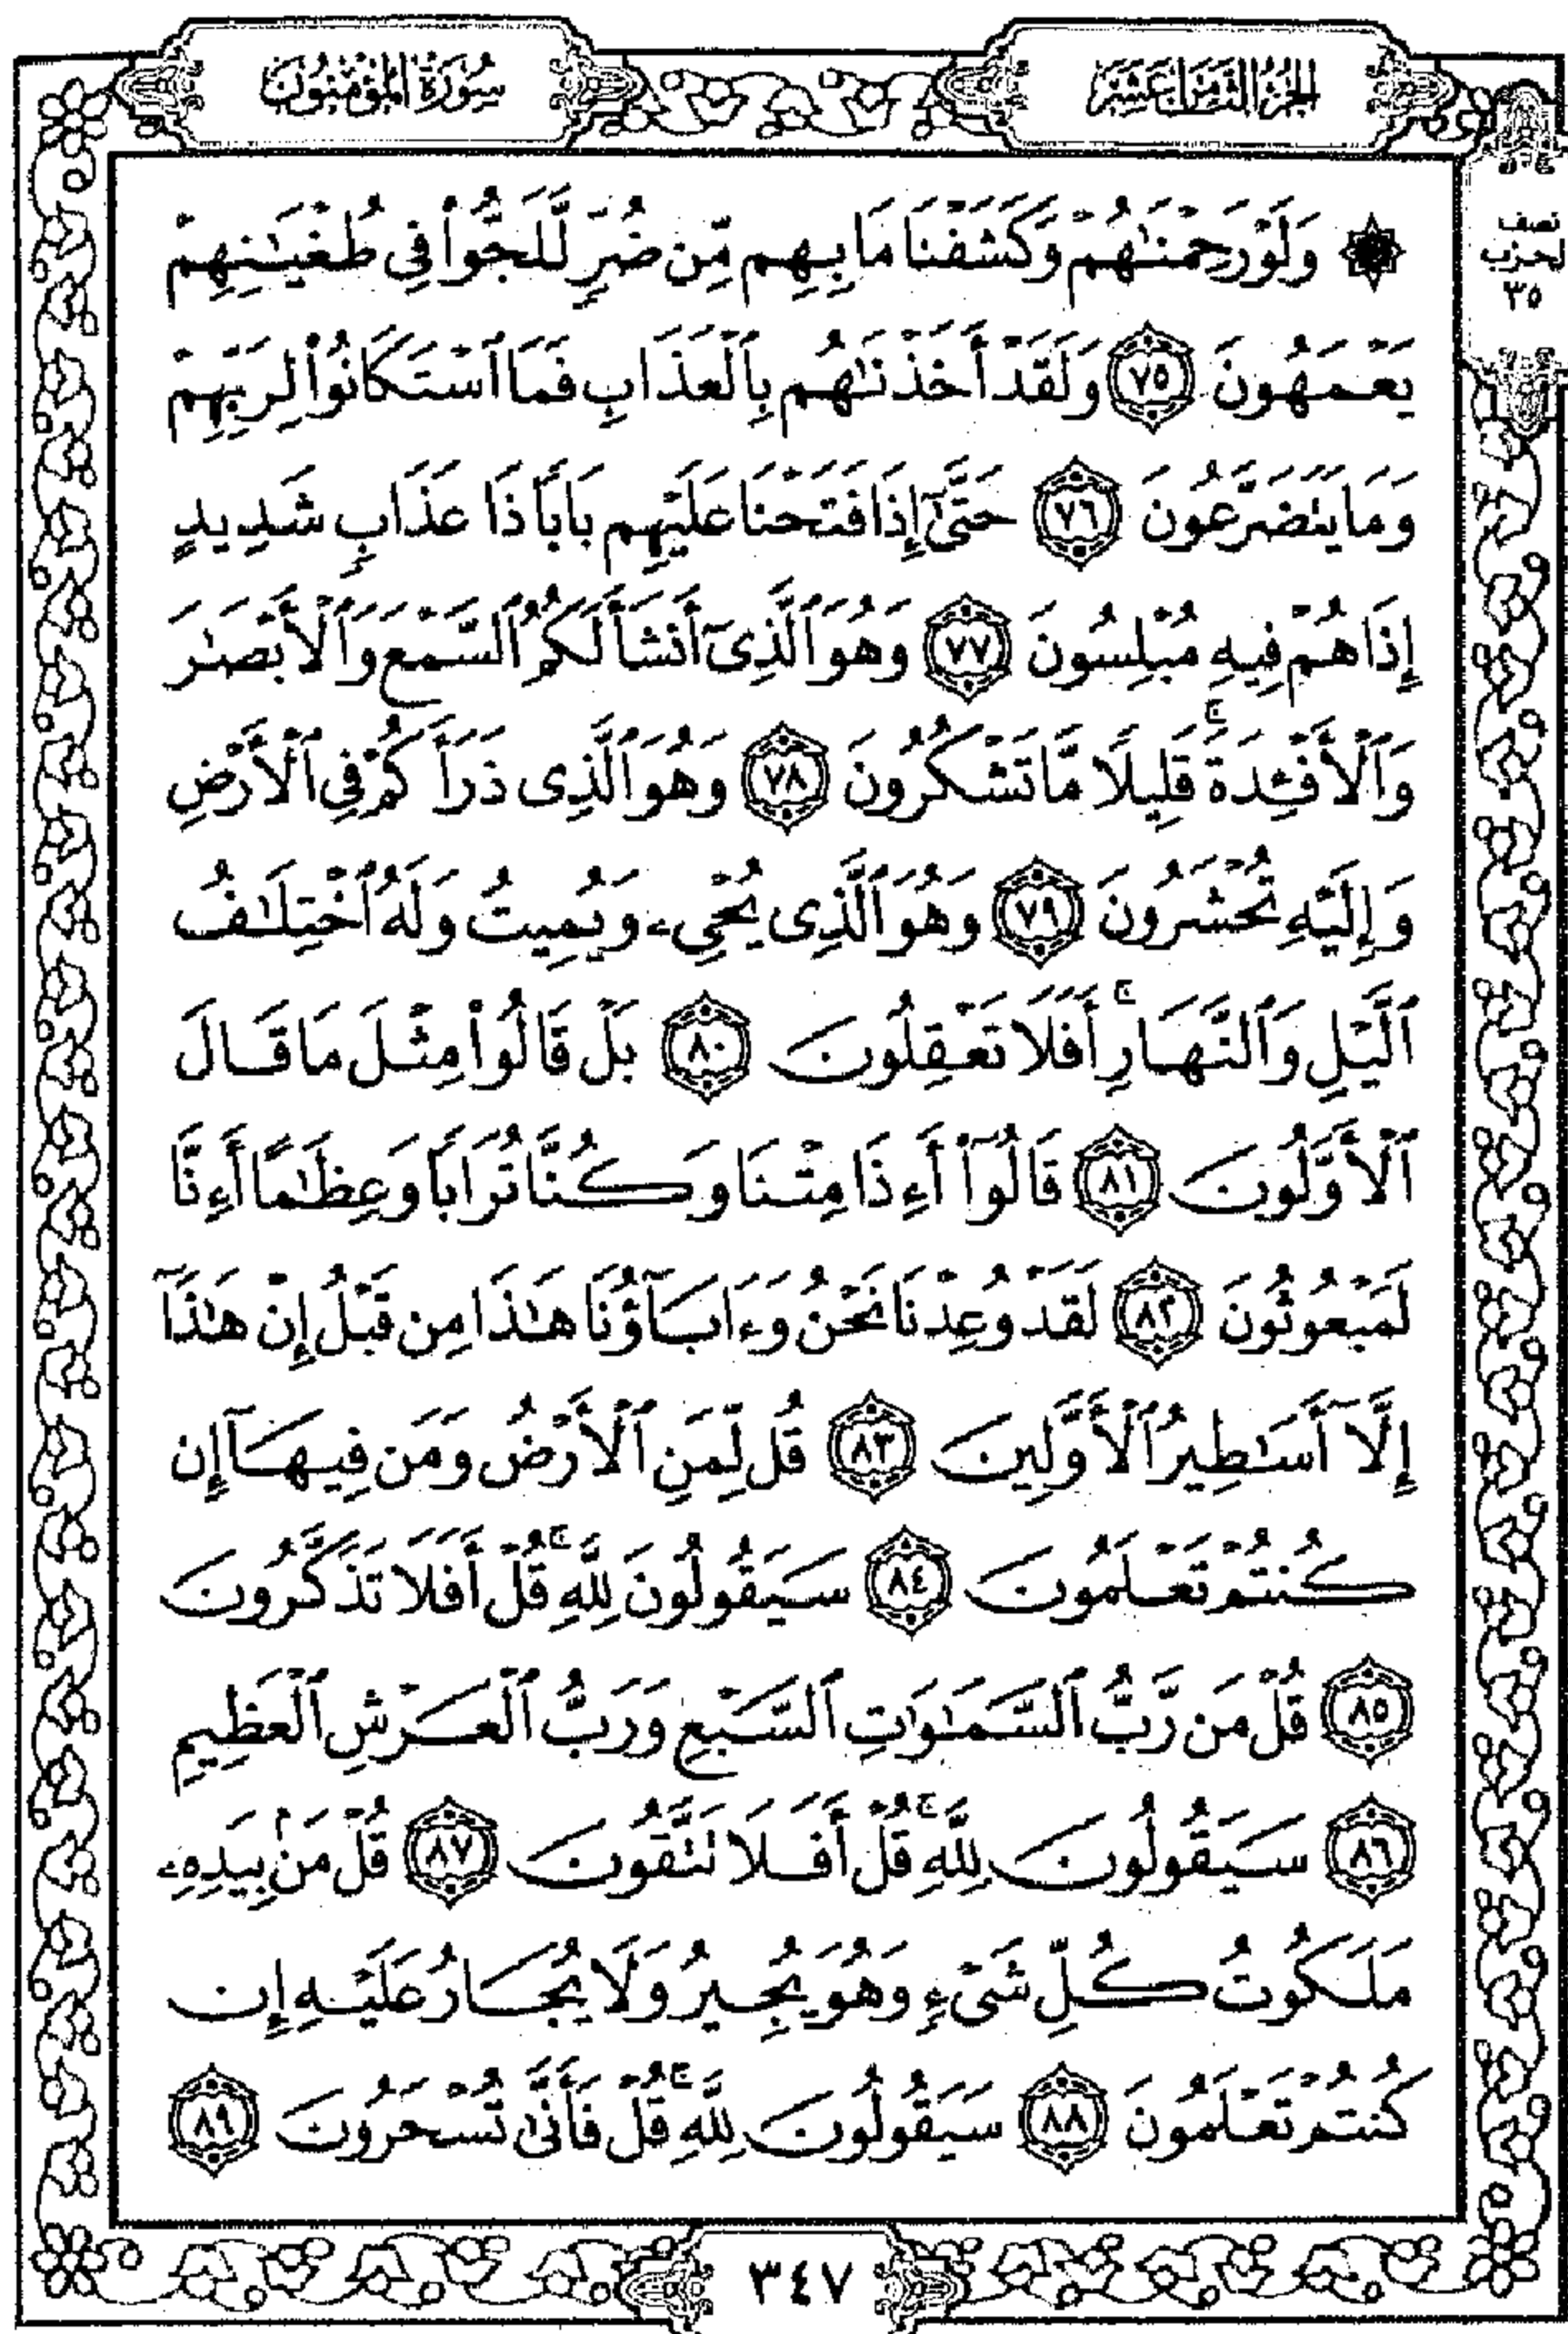 سُورَةُ المُؤْمِنُونَ
الجُزْءُ الثَّامِنَ عَشَرَ
نصف
الحزب
٣٥
۞ وَلَوْ رَحِمْنَٰهُمْ وَكَشَفْنَا مَا بِهِم مِّن ضُرٍّ لَّلَجُّوا۟ فِى طُغْيَٰنِهِمْ
يَعْمَهُونَ ٧٥ وَلَقَدْ أَخَذْنَٰهُم بِٱلْعَذَابِ فَمَا ٱسْتَكَانُوا۟ لِرَبِّهِمْ
وَمَا يَتَضَرَّعُونَ ٧٦ حَتَّىٰٓ إِذَا فَتَحْنَا عَلَيْهِم بَابًا ذَا عَذَابٍ شَدِيدٍ
إِذَا هُمْ فِيهِ مُبْلِسُونَ ٧٧ وَهُوَ ٱلَّذِىٓ أَنشَأَ لَكُمُ ٱلسَّمْعَ وَٱلْأَبْصَٰرَ
وَٱلْأَفْـِٔدَةَ ۚ قَلِيلًا مَّا تَشْكُرُونَ ٧٨ وَهُوَ ٱلَّذِى ذَرَأَكُمْ فِى ٱلْأَرْضِ
وَإِلَيْهِ تُحْشَرُونَ ٧٩ وَهُوَ ٱلَّذِى يُحْىِۦ وَيُمِيتُ وَلَهُ ٱخْتِلَٰفُ
ٱلَّيْلِ وَٱلنَّهَارِ ۚ أَفَلَا تَعْقِلُونَ ٨٠ بَلْ قَالُوا۟ مِثْلَ مَا قَالَ
ٱلْأَوَّلُونَ ٨١ قَالُوٓا۟ أَءِذَا مِتْنَا وَكُنَّا تُرَابًا وَعِظَٰمًا أَءِنَّا
لَمَبْعُوثُونَ ٨٢ لَقَدْ وُعِدْنَا نَحْنُ وَءَابَآؤُنَا هَٰذَا مِن قَبْلُ إِنْ هَٰذَآ
إِلَّآ أَسَٰطِيرُ ٱلْأَوَّلِينَ ٨٣ قُل لِّمَنِ ٱلْأَرْضُ وَمَن فِيهَآ إِن
كُنتُمْ تَعْلَمُونَ ٨٤ سَيَقُولُونَ لِلَّهِ ۚ قُلْ أَفَلَا تَذَكَّرُونَ
٨٥ قُلْ مَن رَّبُّ ٱلسَّمَٰوَٰتِ ٱلسَّبْعِ وَرَبُّ ٱلْعَرْشِ ٱلْعَظِيمِ
٨٦ سَيَقُولُونَ لِلَّهِ ۚ قُلْ أَفَلَا تَتَّقُونَ ٨٧ قُلْ مَنۢ بِيَدِهِۦ
مَلَكُوتُ كُلِّ شَىْءٍ وَهُوَ يُجِيرُ وَلَا يُجَارُ عَلَيْهِ إِن
كُنتُمْ تَعْلَمُونَ ٨٨ سَيَقُولُونَ لِلَّهِ ۚ قُلْ فَأَنَّىٰ تُسْحَرُونَ ٨٩
٣٤٧